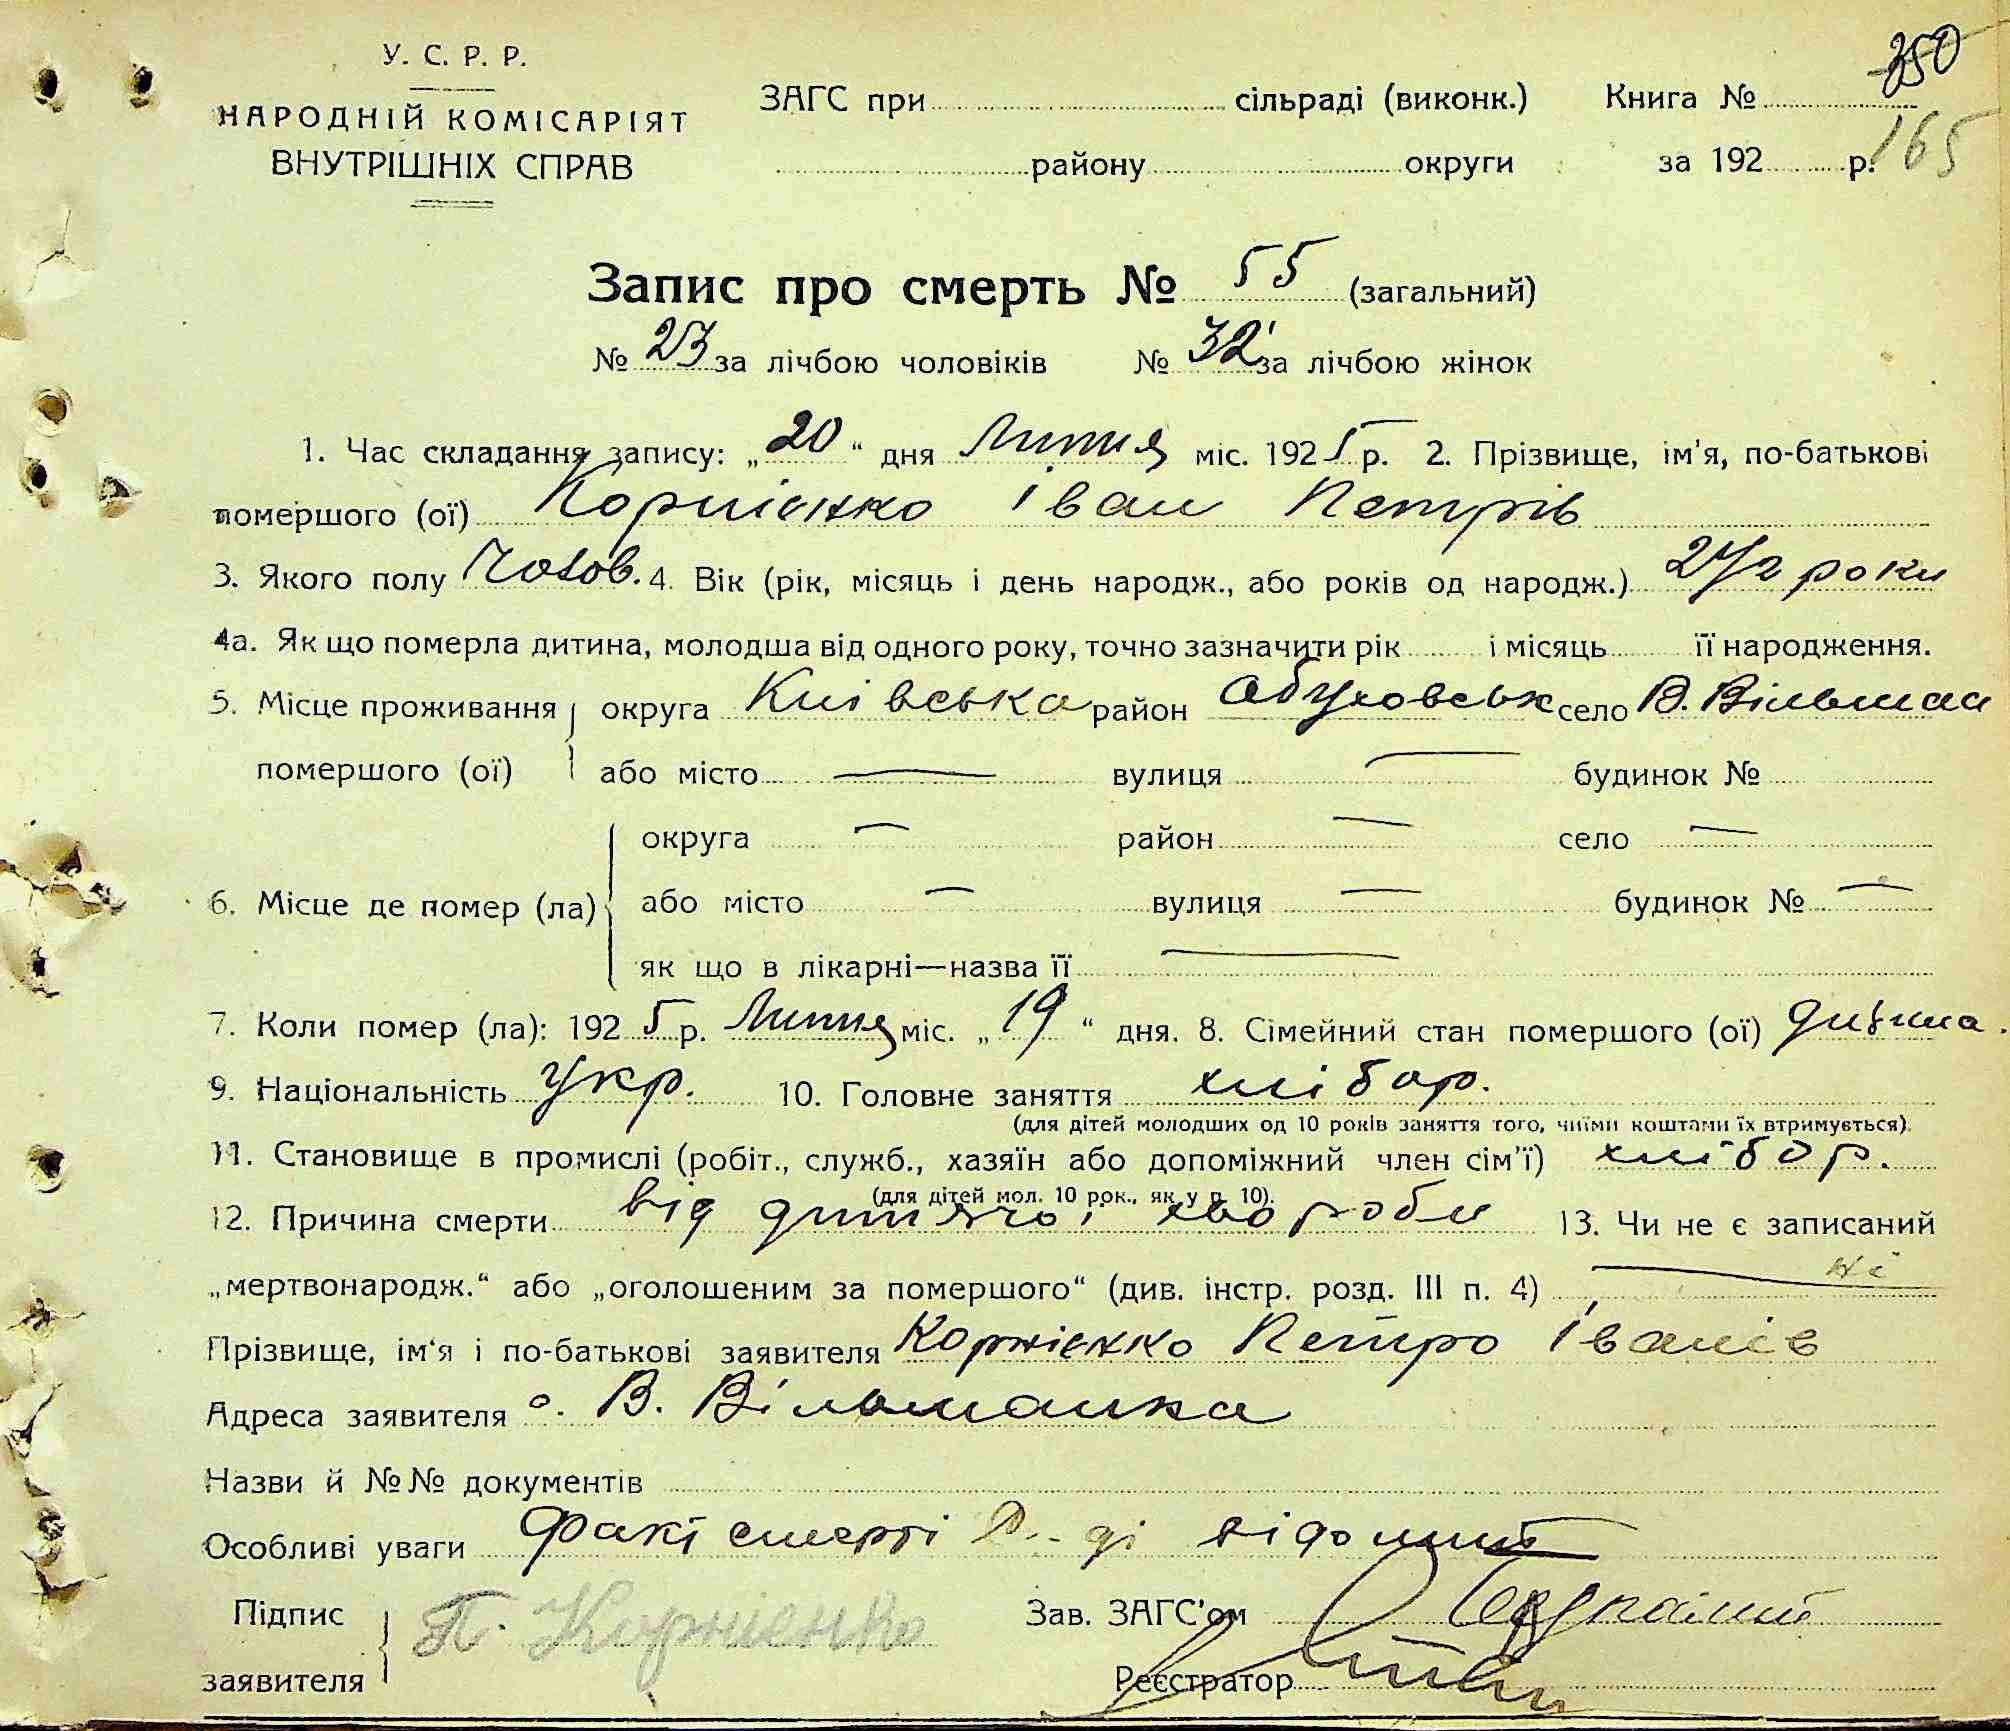 350
У. С. Р. Р.
НАРОДНІЙ КОМІСАРІЯТ
ВНУТРІШНІХ СПРАВ
ЗАГС при сільраді (виконк.) Книга №
165
району округи за 192 р.
Запис про смерть № 55 (загальний)
№ 23 за лічбою чоловіків № 32 за лічбою жінок
1. Час складання запису: „20“ дня Липня міс. 1925 р. 2. Прізвище, ім'я, по-батькові
помершого (ої) Корнієнко Іван Петрів
3. Якого полу Чолов. 4. Вік (рік, місяць і день народж., або років од народж.) 2 1/2 роки
4а. Як що померла дитина, молодша від одного року, точно зазначити рік і місяць її народження.
5. Місце проживання округа Київська район Обуховськ село В. Вільшан
помершого (ої) або місто — вулиця — будинок №
округа — район — село —
6. Місце де помер (ла) або місто — вулиця — будинок № —
як що в лікарні—назва її —
7. Коли помер (ла): 1925 р. Липня міс. „19“ дня. 8. Сімейний стан помершого (ої) дитина.
9. Національність Укр. 10. Головне заняття хлібор.
(для дітей молодших од 10 років заняття того, чиїми коштами їх втримується).
11. Становище в промислі (робіт., служб., хазяїн або допоміжний член сім'ї) хлібор.
(для дітей мол. 10 рок., як у п. 10).
12. Причина смерти від дитячої хвороби 13. Чи не є записаний
„мертвонародж.“ або „оголошеним за помершого“ (див. інстр. розд. III п. 4) ні
Прізвище, ім'я і по-батькові заявителя Корнієнко Петро Іванів
Адреса заявителя с. В. Вільшанка
Назви й №№ документів
Особливі уваги Факт смерті відомий
Підпис заявителя П. Корнієнко Зав. ЗАГС'ом
Реєстратор